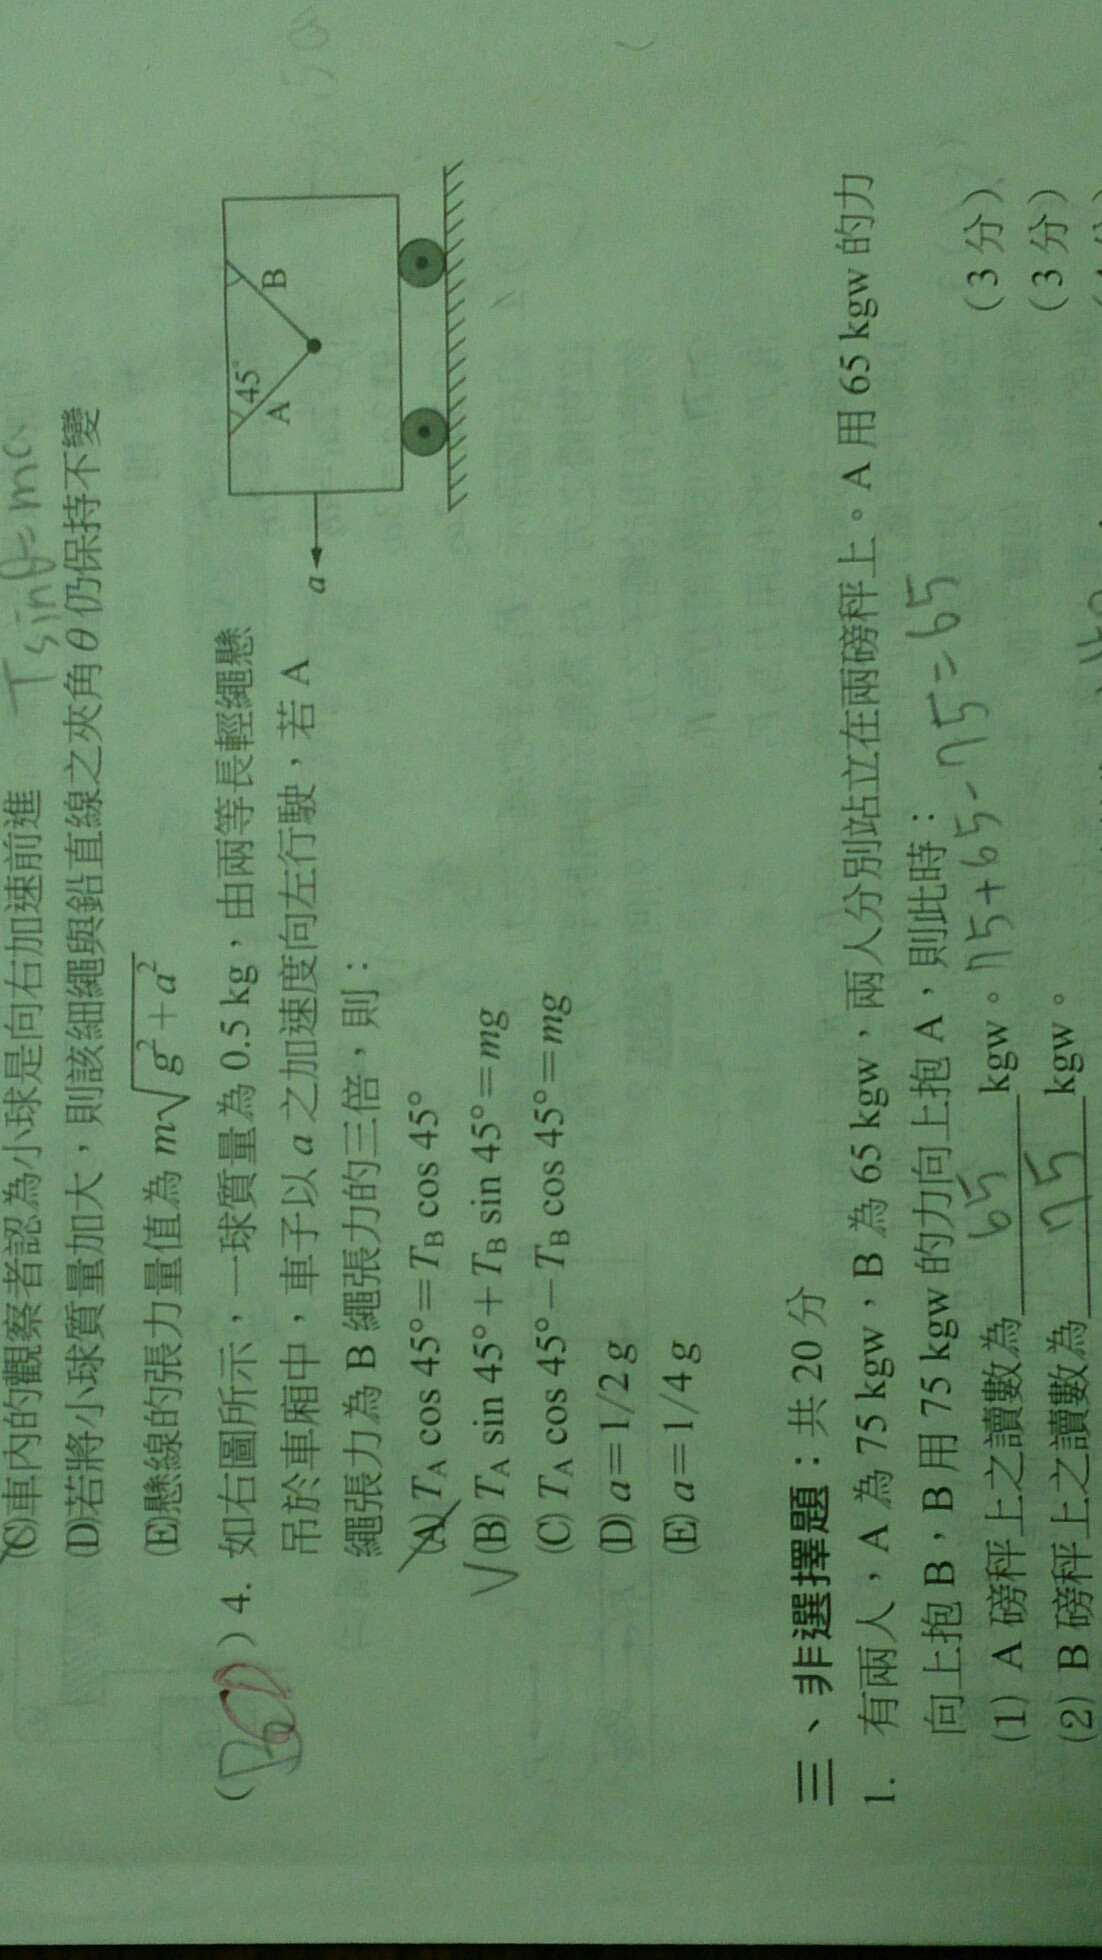 T sinθ = ma
(C)車內的觀察者認為小球是向右加速前進
(D)若將小球質量加大，則該細繩與鉛直線之夾角θ仍保持不變
(E)懸線的張力量值為 m√g²+a²
( )4. 如右圖所示，一球質量為 0.5 kg，由兩等長輕繩懸
吊於車廂中，車子以 a 之加速度向左行駛，若 A
繩張力為 B 繩張力的三倍，則：
(A) T_A cos 45°=T_B cos 45°
(B) T_A sin 45°+T_B sin 45°=mg
(C) T_A cos 45°−T_B cos 45°=mg
(D) a=1/2 g
(E) a=1/4 g
45°
A
B
a
三、非選擇題：共 20 分
1. 有兩人，A 為 75 kgw，B 為 65 kgw，兩人分別站立在兩磅秤上。A 用 65 kgw 的力
向上抱 B，B 用 75 kgw 的力向上抱 A，則此時：
75+65-75=65
(1) A 磅秤上之讀數為 65 kgw。 (3 分)
(2) B 磅秤上之讀數為 75 kgw。 (3 分)